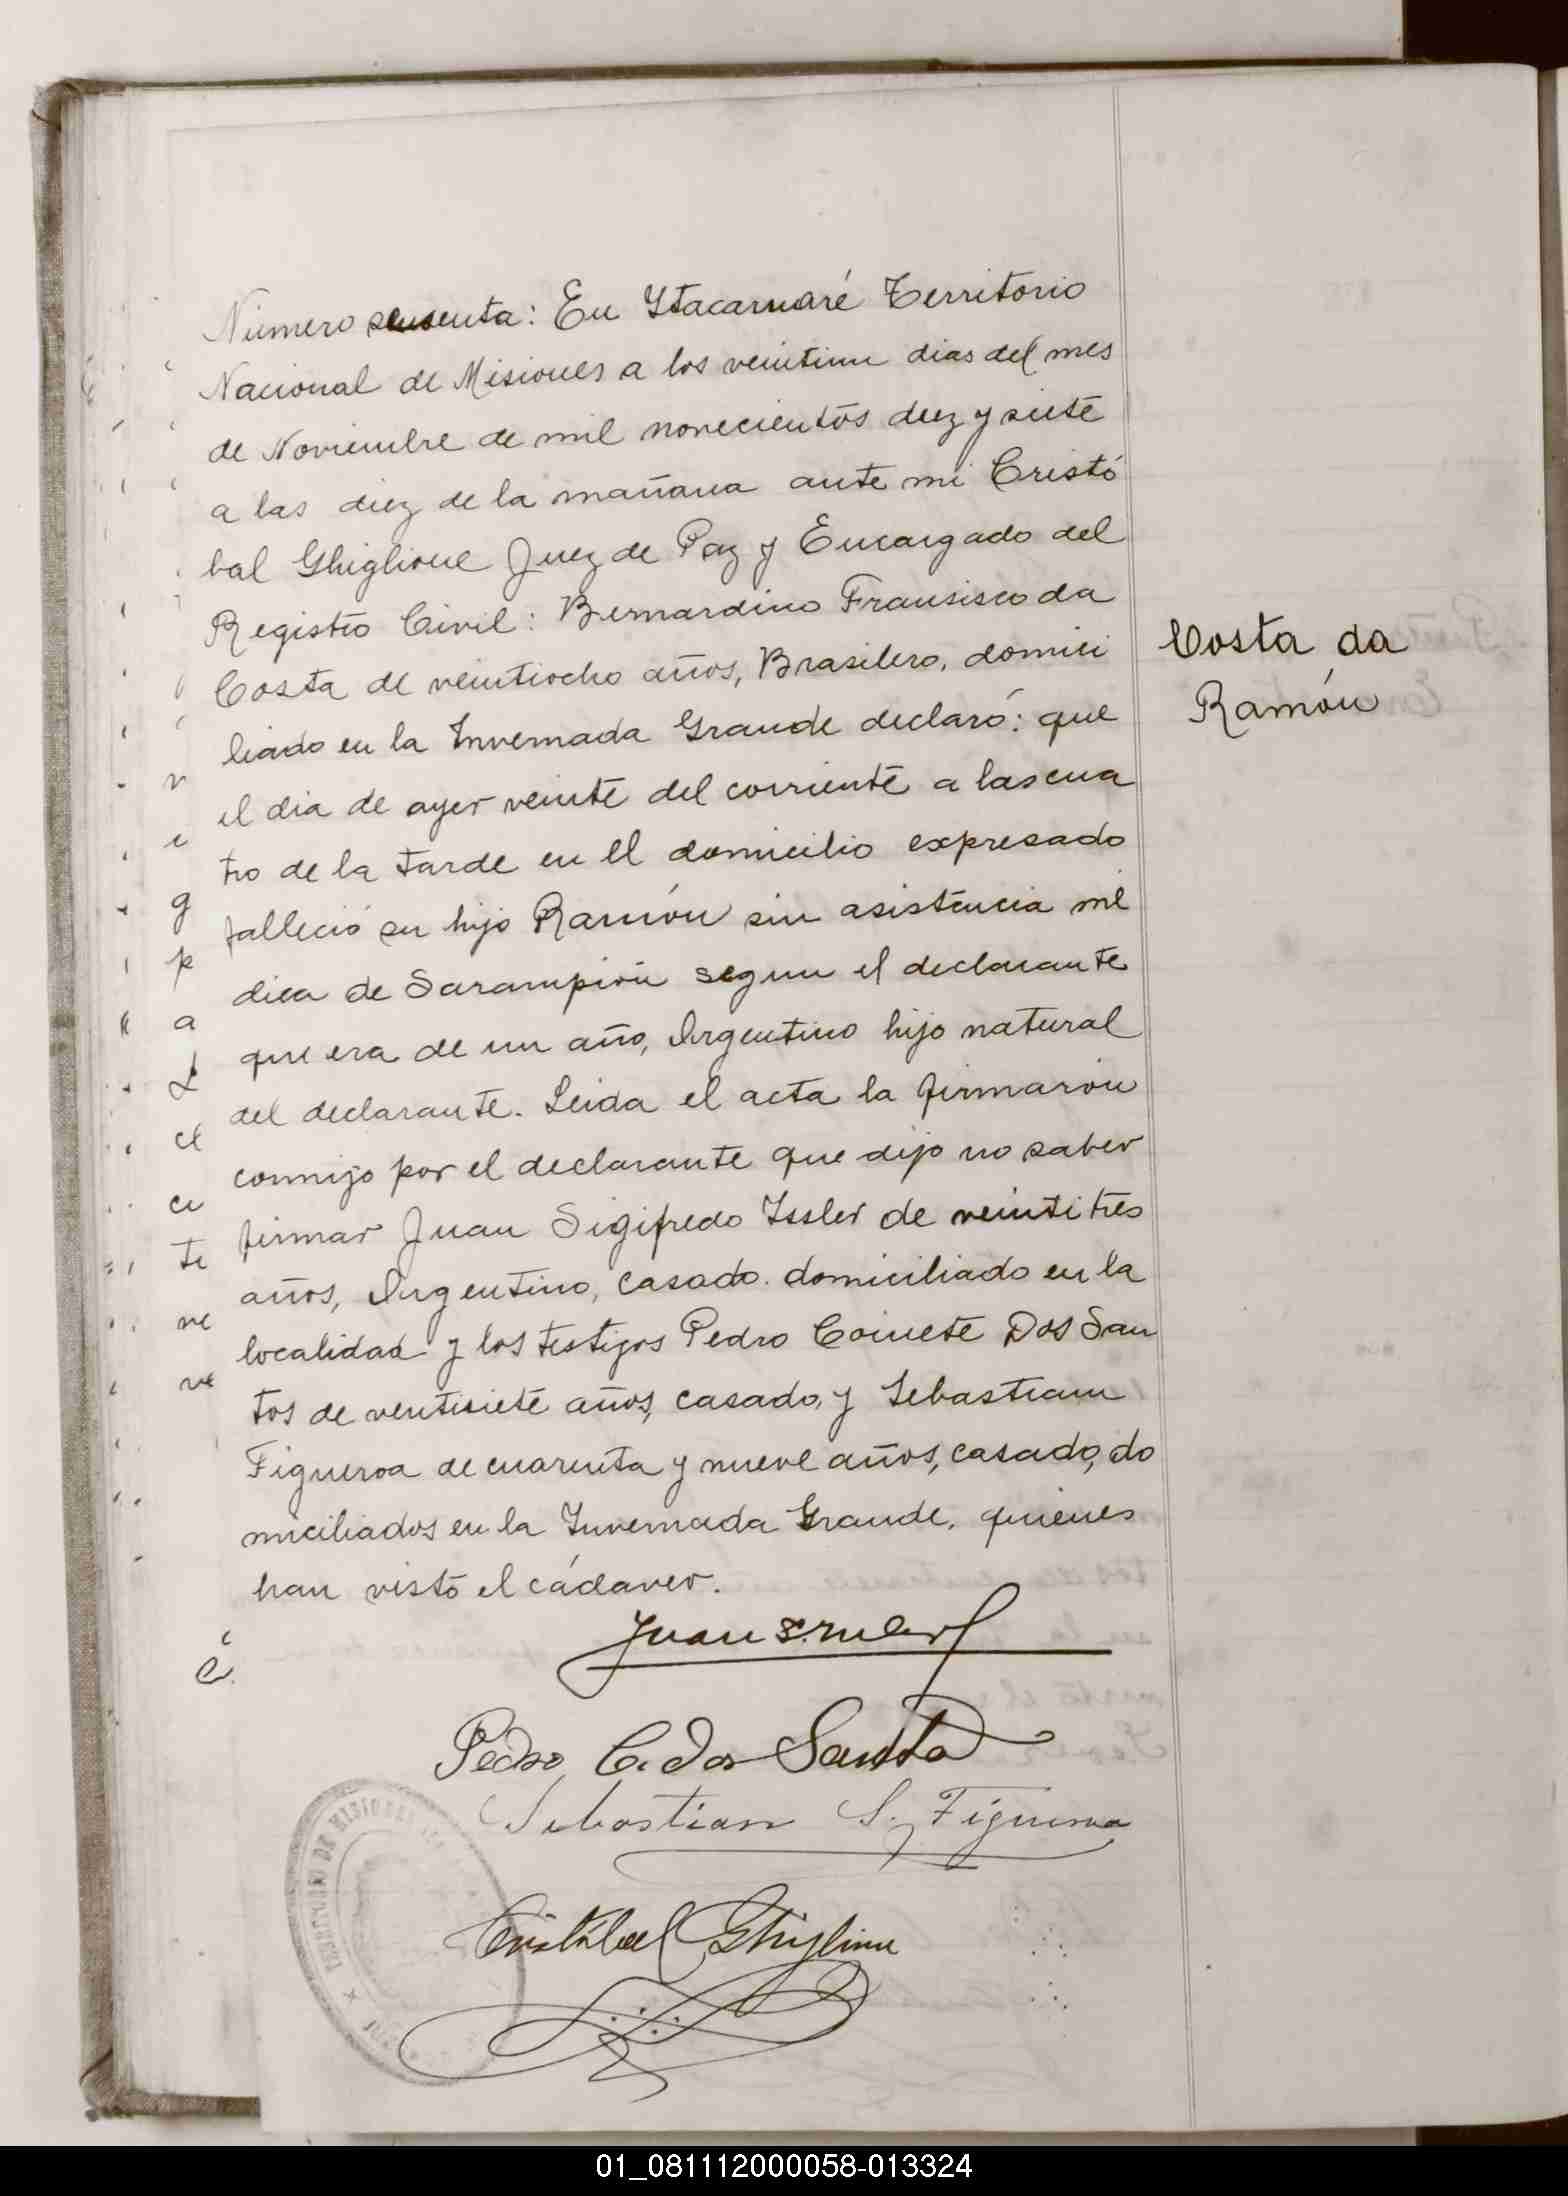 Número sesenta: En Itacaruaré Territorio
Nacional de Misiones a los veintiun dias del mes
de Noviembre de mil novecientos diez y siete
a las diez de la mañana ante mi Cristó
bal Ghiglione Juez de Paz y Encargado del
Registro Civil: Bernardino Fransisco da
Costa de veintiocho años, Brasilero, domici
liado en la Invernada Grande declaró: que
el dia de ayer veinte del corriente a las cua
tro de la tarde en el domicilio expresado
falleció su hijo Ramón sin asistencia mé
dica de Sarampión segun el declarante
que era de un año, Argentino hijo natural
del declarante. Leida el acta la firmaron
conmigo por el declarante que dijo no saber
firmar Juan Sigifredo Issler de veintitres
años, Argentino, casado. domiciliado en la
localidad y los testigos Pedro Dos San
tos de ventisiete años, casado, y Sebastian
Figueroa de cuarenta y nueve años, casado, do
miciliados en la Invernada Grande, quienes
han visto el cádaver.
Costa da
Ramón
Juan S.
Pedro C. dos Santos
Sebastian S. Figueroa
Cristóbal Ghiglione
TERRITORIO DE MISIONES
01_081112000058-013324